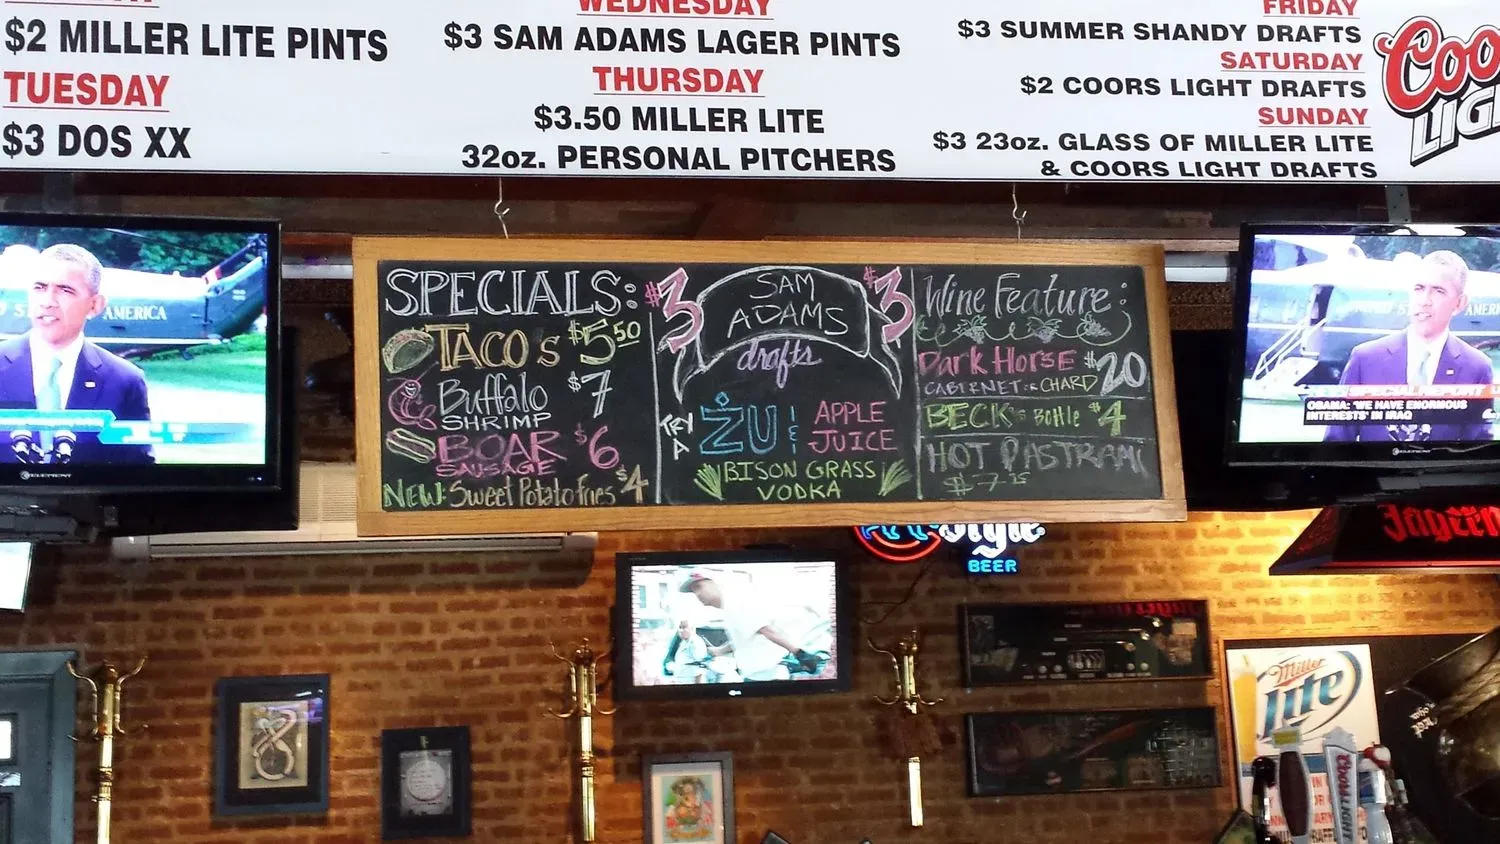 $2 MILLER LITE PINTS
TUESDAY
$3 DOS XX
WEDNESDAY
$3 SAM ADAMS LAGER PINTS
THURSDAY
$3.50 MILLER LITE
32oz. PERSONAL PITCHERS
FRIDAY
$3 SUMMER SHANDY DRAFTS
SATURDAY
$2 COORS LIGHT DRAFTS
SUNDAY
$3 23oz. GLASS OF MILLER LITE
& COORS LIGHT DRAFTS
AMERICA
ELEMENT
SPECIALS:
TACOS $5.50
Buffalo
SHRIMP $7
BOAR
SAUSAGE $6
NEW: Sweet Potato fries $4
$3 SAM ADAMS $3
drafts
TRY A
ŻU & APPLE JUICE
BISON GRASS
VODKA
Wine Feature:
DARK HORSE $20
CABERNET OR CHARD
BECKS BOTTLE $4
HOT PASTRAMI
OBAMA: 'WE HAVE ENORMOUS
INTERESTS' IN IRAQ
ELEMENT
Style
BEER
Miller
Lite